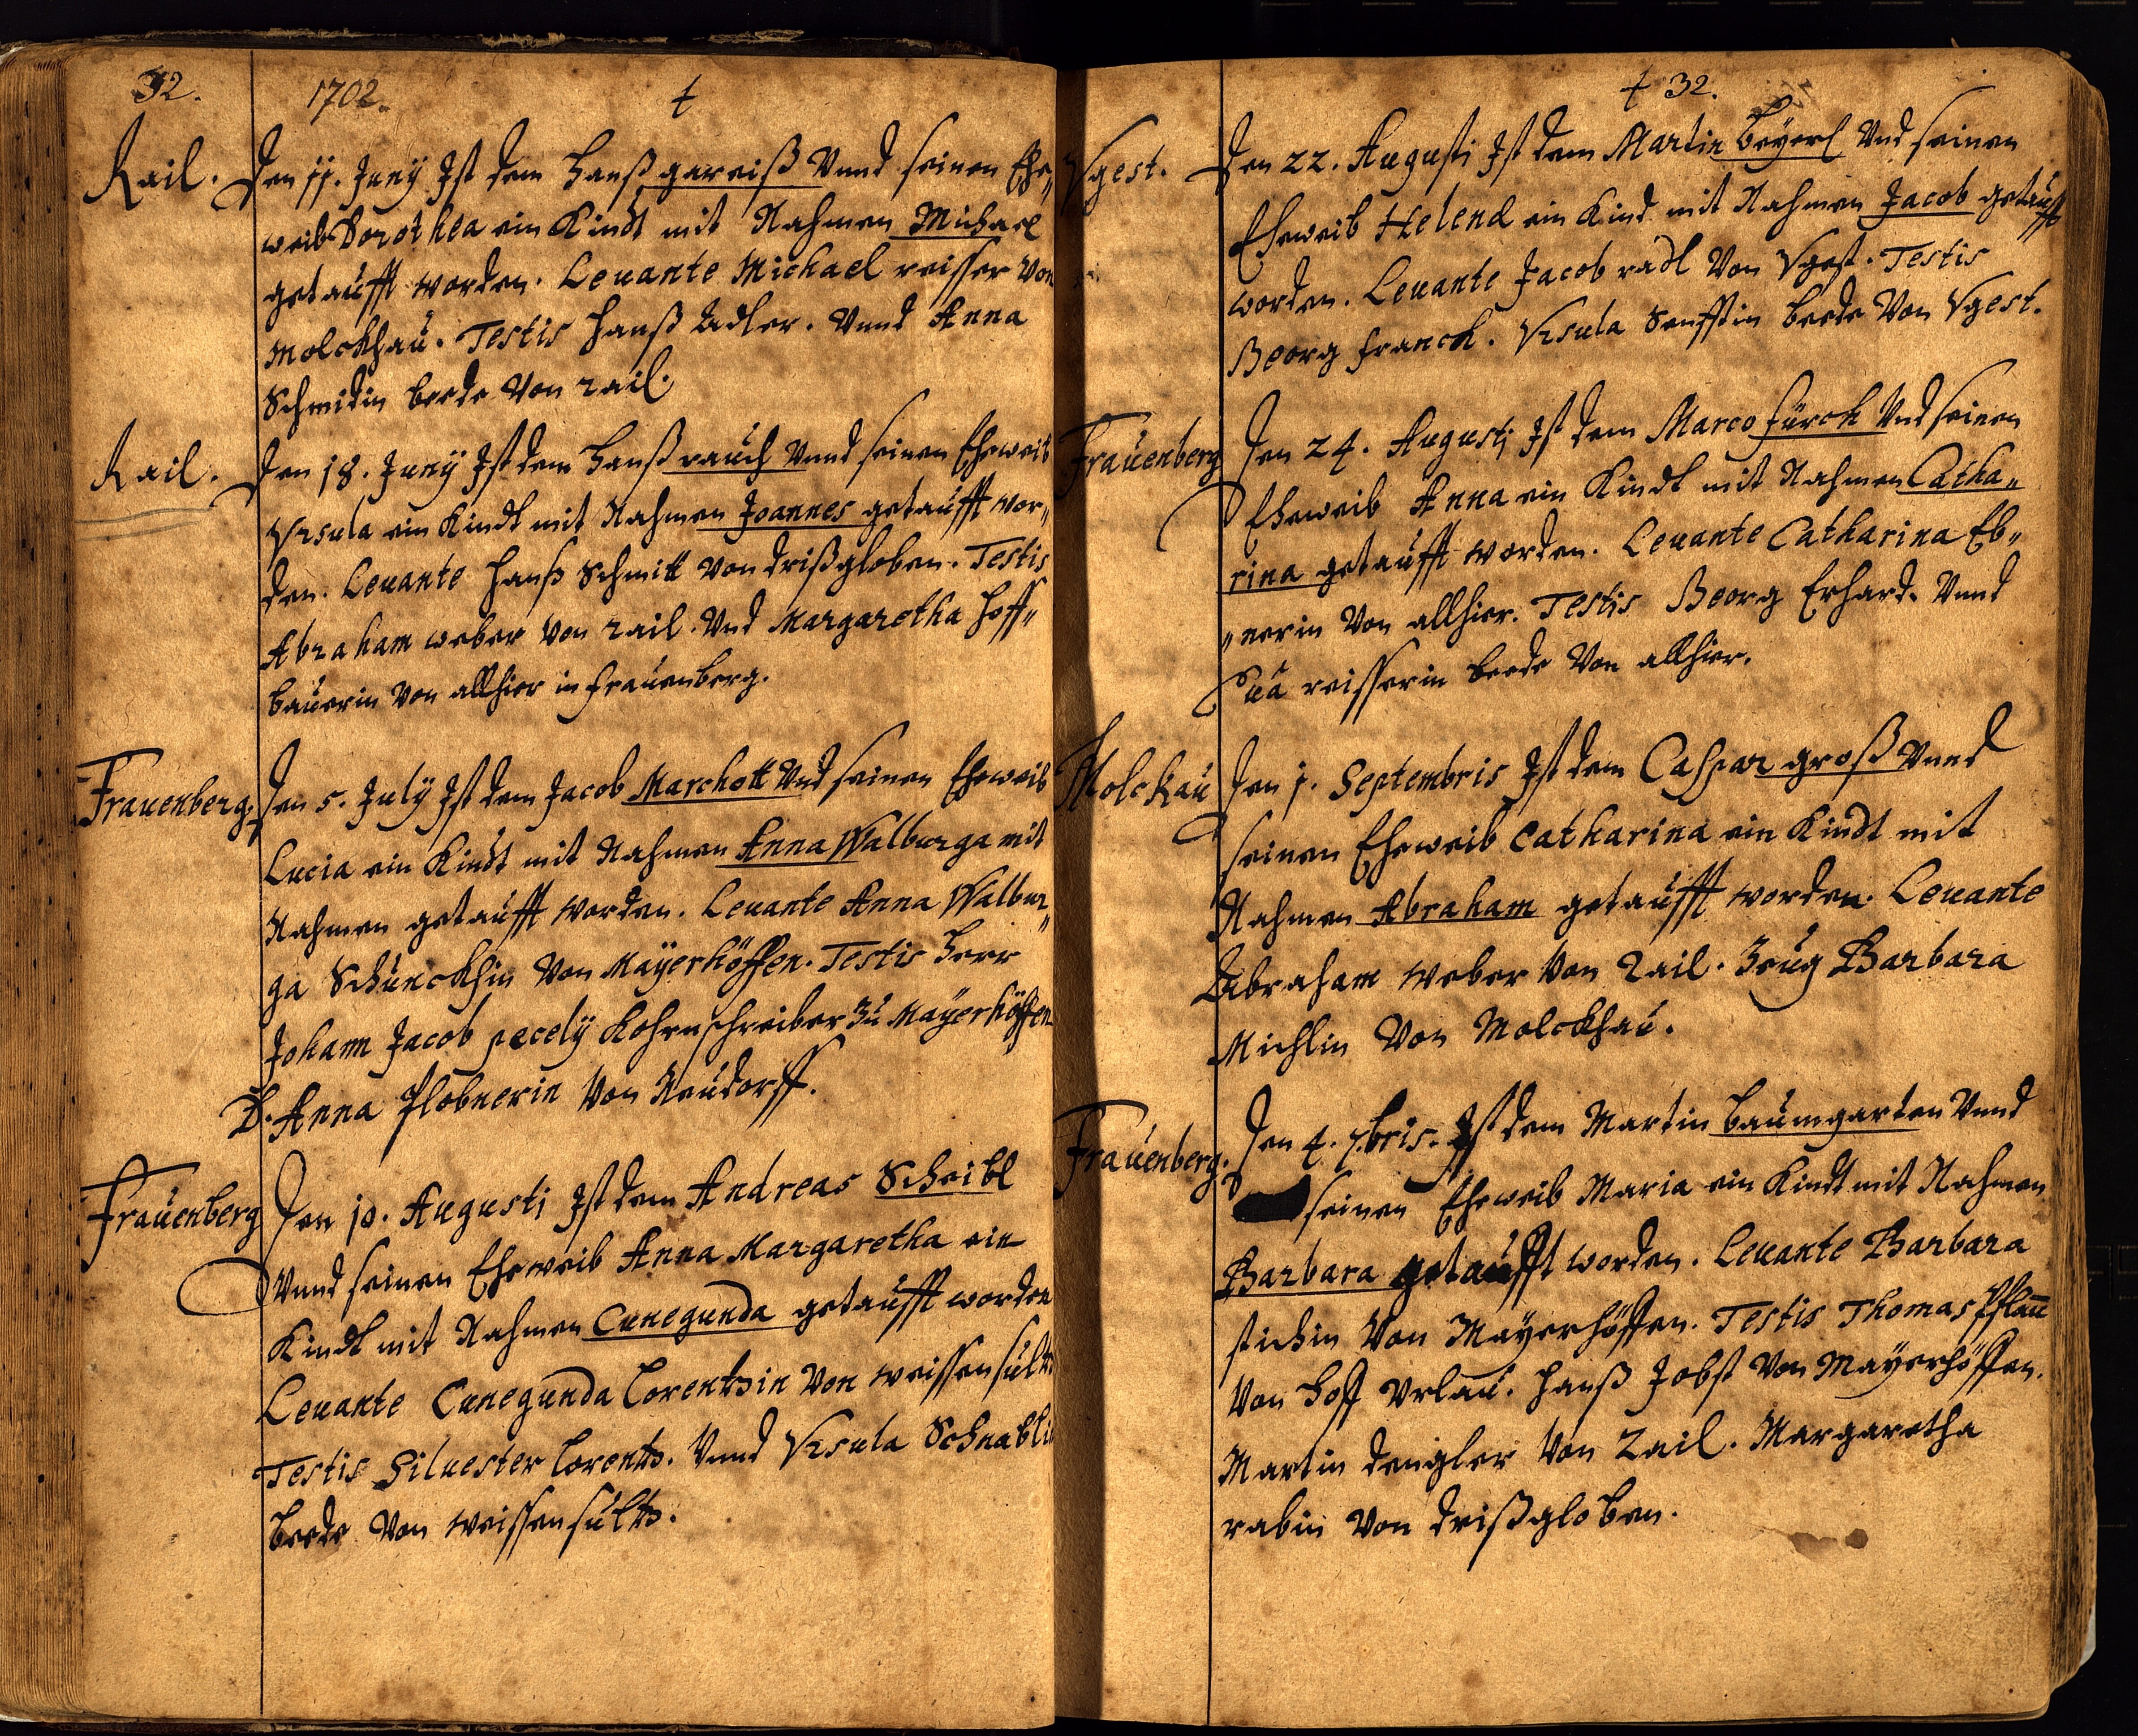 32. 1702. t
Rail. Den 11. Junÿ Ist dem Hanß gareiß Vnnd seinen Ehe„
weib Dorothea ein Kindt mit Nahmen Michael
getaufft worden. Leuante Michael reisser Von
Molckhau. Testis Hanß Adler. Vnnd Anna
Schmidin beede Von rail.
Rail. Den 18. Junÿ Ist dem Hanß rauch Vnnd seinen Eheweib
Vrsula ein Kindt mit Nahmen Joannes getaufft wor„
den. Leuante Hanß Schmitt Von drißgloben. Testis
Abraham weber Von rail. Vnd Margaretha Hoff„
bauerin Von allhier in frauenberg.
Frauenberg. Den 5. Julÿ Ist dem Jacob Marchott Vnd seinen Eheweib
Lucia ein Kindt mit Nahmen Anna Walburga mit
Nahmen getaufft worden. Leuante Anna Walbur„
ga Schunckhin Von Mayerhöffen. Testis Herr
Johann Jacob pecelÿ Kohrnschreiber Zu Mayerhöffen
D. Anna Plobnerin Von Neudorff.
Frauenberg Den 10. Augusti Ist dem Andreas Scheibl
Vnnd seinen Eheweib Anna Margaretha ein
Kindt mit Nahmen Cunegunda getaufft worden
Leuante Cunegunda Lorentzin Von weissensultz
Testis Siluester Lorentz. Vnnd Vrsula Schnablin
beede Von weissensultz.
t 32.
Vgest. Den 22. Augusti Ist dem Martin beÿerl Vnd seinen
Eheweib Helena ein Kind mit Nahmen Jacob getaufft
worden. Leuante Jacob radl Von Vgest. Testis
Georg franck. Vrsula Senfftin beede Von Vgest.
Frauenberg Den 24. Augusti Ist dem Marco fürch Vnd seinen
Eheweib Anna ein Kindt mit Nahmen Catha„
rina getaufft worden. Leuante Catharina Eb„
„nerin Von allhier. Testis Georg Erhard. Vnnd
Eua reisserin beede Von allhier.
Molckau Den 1. Septembris Ist dem Caspar groß Vnnd
seinen Eheweib Catharina ein Kindt mit
Nahmen Abraham getaufft worden. Leuante
Abraham weber Von Rail. Zeug Barbara
Michlin Von Molckhau.
Frauenberg. Den 4. 7bris. Ist dem Martin baumgarten Vnnd
seinen Eheweib Maria ein Kindt mit Nahmen
Barbara getaufft worden. Leuante Barbara
stichin Von Mayerhöffen. Testis Thomas Pflau
Von Hoff Vrlau. Hanß Jobst Von Mayerhöffen.
Martin dengler Von Rail. Margaretha
rabin Von drißgloben.